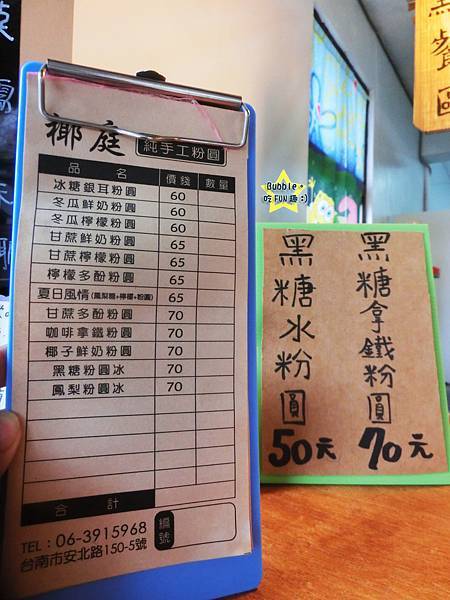 椰庭 純手工粉圓
品名 價錢 數量
冰糖銀耳粉圓 60
冬瓜鮮奶粉圓 60
冬瓜檸檬粉圓 60
甘蔗鮮奶粉圓 65
甘蔗檸檬粉圓 65
檸檬多酚粉圓 65
夏日風情(鳳梨糖+檸檬+粉圓) 65
甘蔗多酚粉圓 70
咖啡拿鐵粉圓 70
椰子鮮奶粉圓 70
黑糖粉圓冰 70
鳳梨粉圓冰 70
合計
TEL：06-3915968
台南市安北路150-5號
編號
Bubble。
吃FUN趣:)
黑糖拿鐵粉圓
70元
黑糖水粉圓
50元